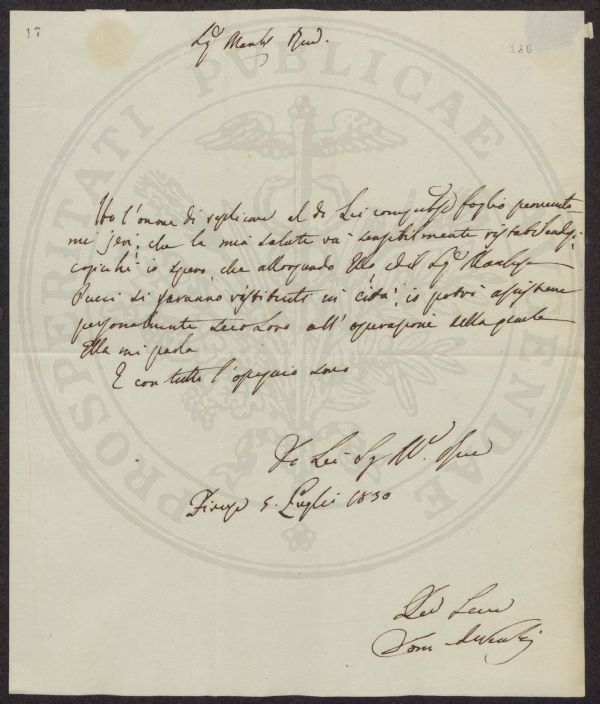 17
186
Sig. March. Pne
Ho l'onore di replicare al di Lei compitiss. foglio pervenuto
mi jeri, che la mia salute va sensibilmente ristabilendosi,
cosicchè io spero che allorquando Ella ed il Sig. Marchese
Pucci si saranno restituiti in città, io potrò assistere
personalmente seco Loro all'operazione della quale
Ella mi parla
E con tutto l'ossequio sono
Di Lei Sig. M.
Firenze 5. Luglio 1830
PROSPERITATI PVBLICAE AVGENDAE